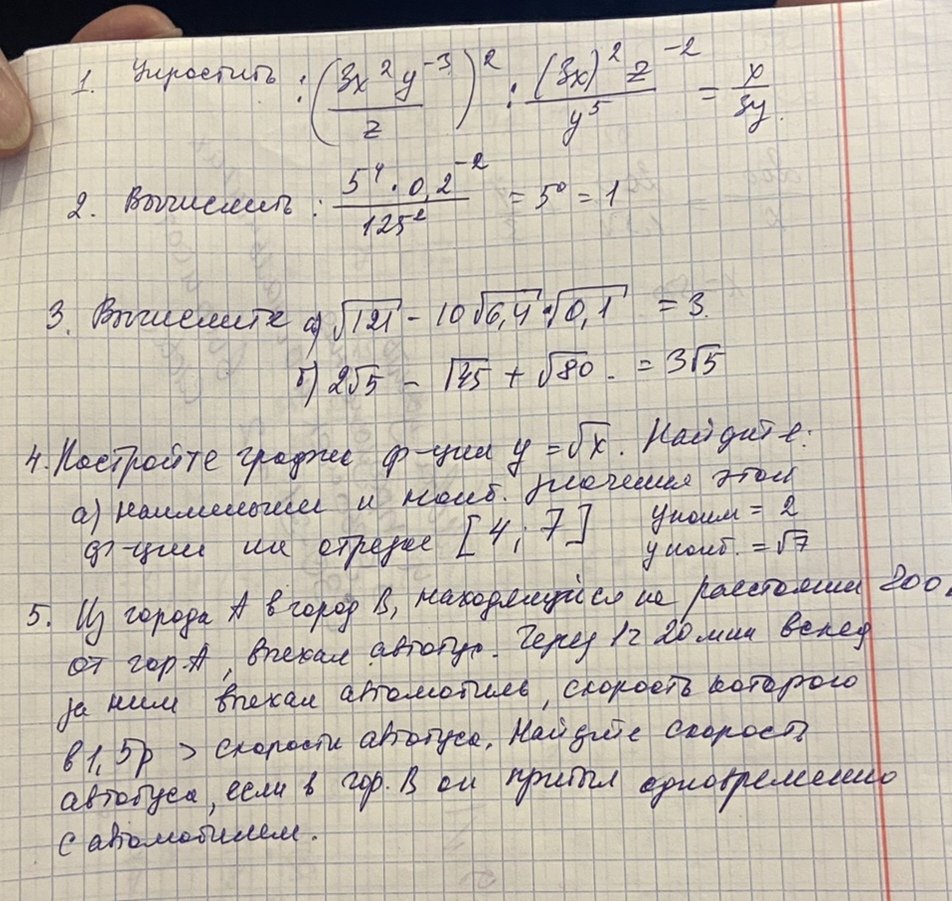 1. Упростить: (3x²y⁻³/z)² : (3x)²z⁻²/y⁵ = x/3y.
2. Вычислить: 5⁴·0,2⁻²/125² = 5⁰ = 1
3. Вычислите а) √121 - 10√6,4·√0,1 = 3.
б) 2√5 - √45 + √80. = 3√5
4. Постройте график ф-ции y = √x. Найдите:
а) наименьшее и наиб. значения этой
ф-ции на отрезке [4; 7] yнаим = 2
yнаиб. = √7
5. Из города А в город В, находящийся на расстоянии 200
от гор. А, выехал автобус. Через 1ч 20 мин вслед
за ним выехал автомобиль, скорость которого
в 1,5р > скорости автобуса. Найдите скорость
автобуса, если в гор. В он прибыл одновременно
с автомобилем.